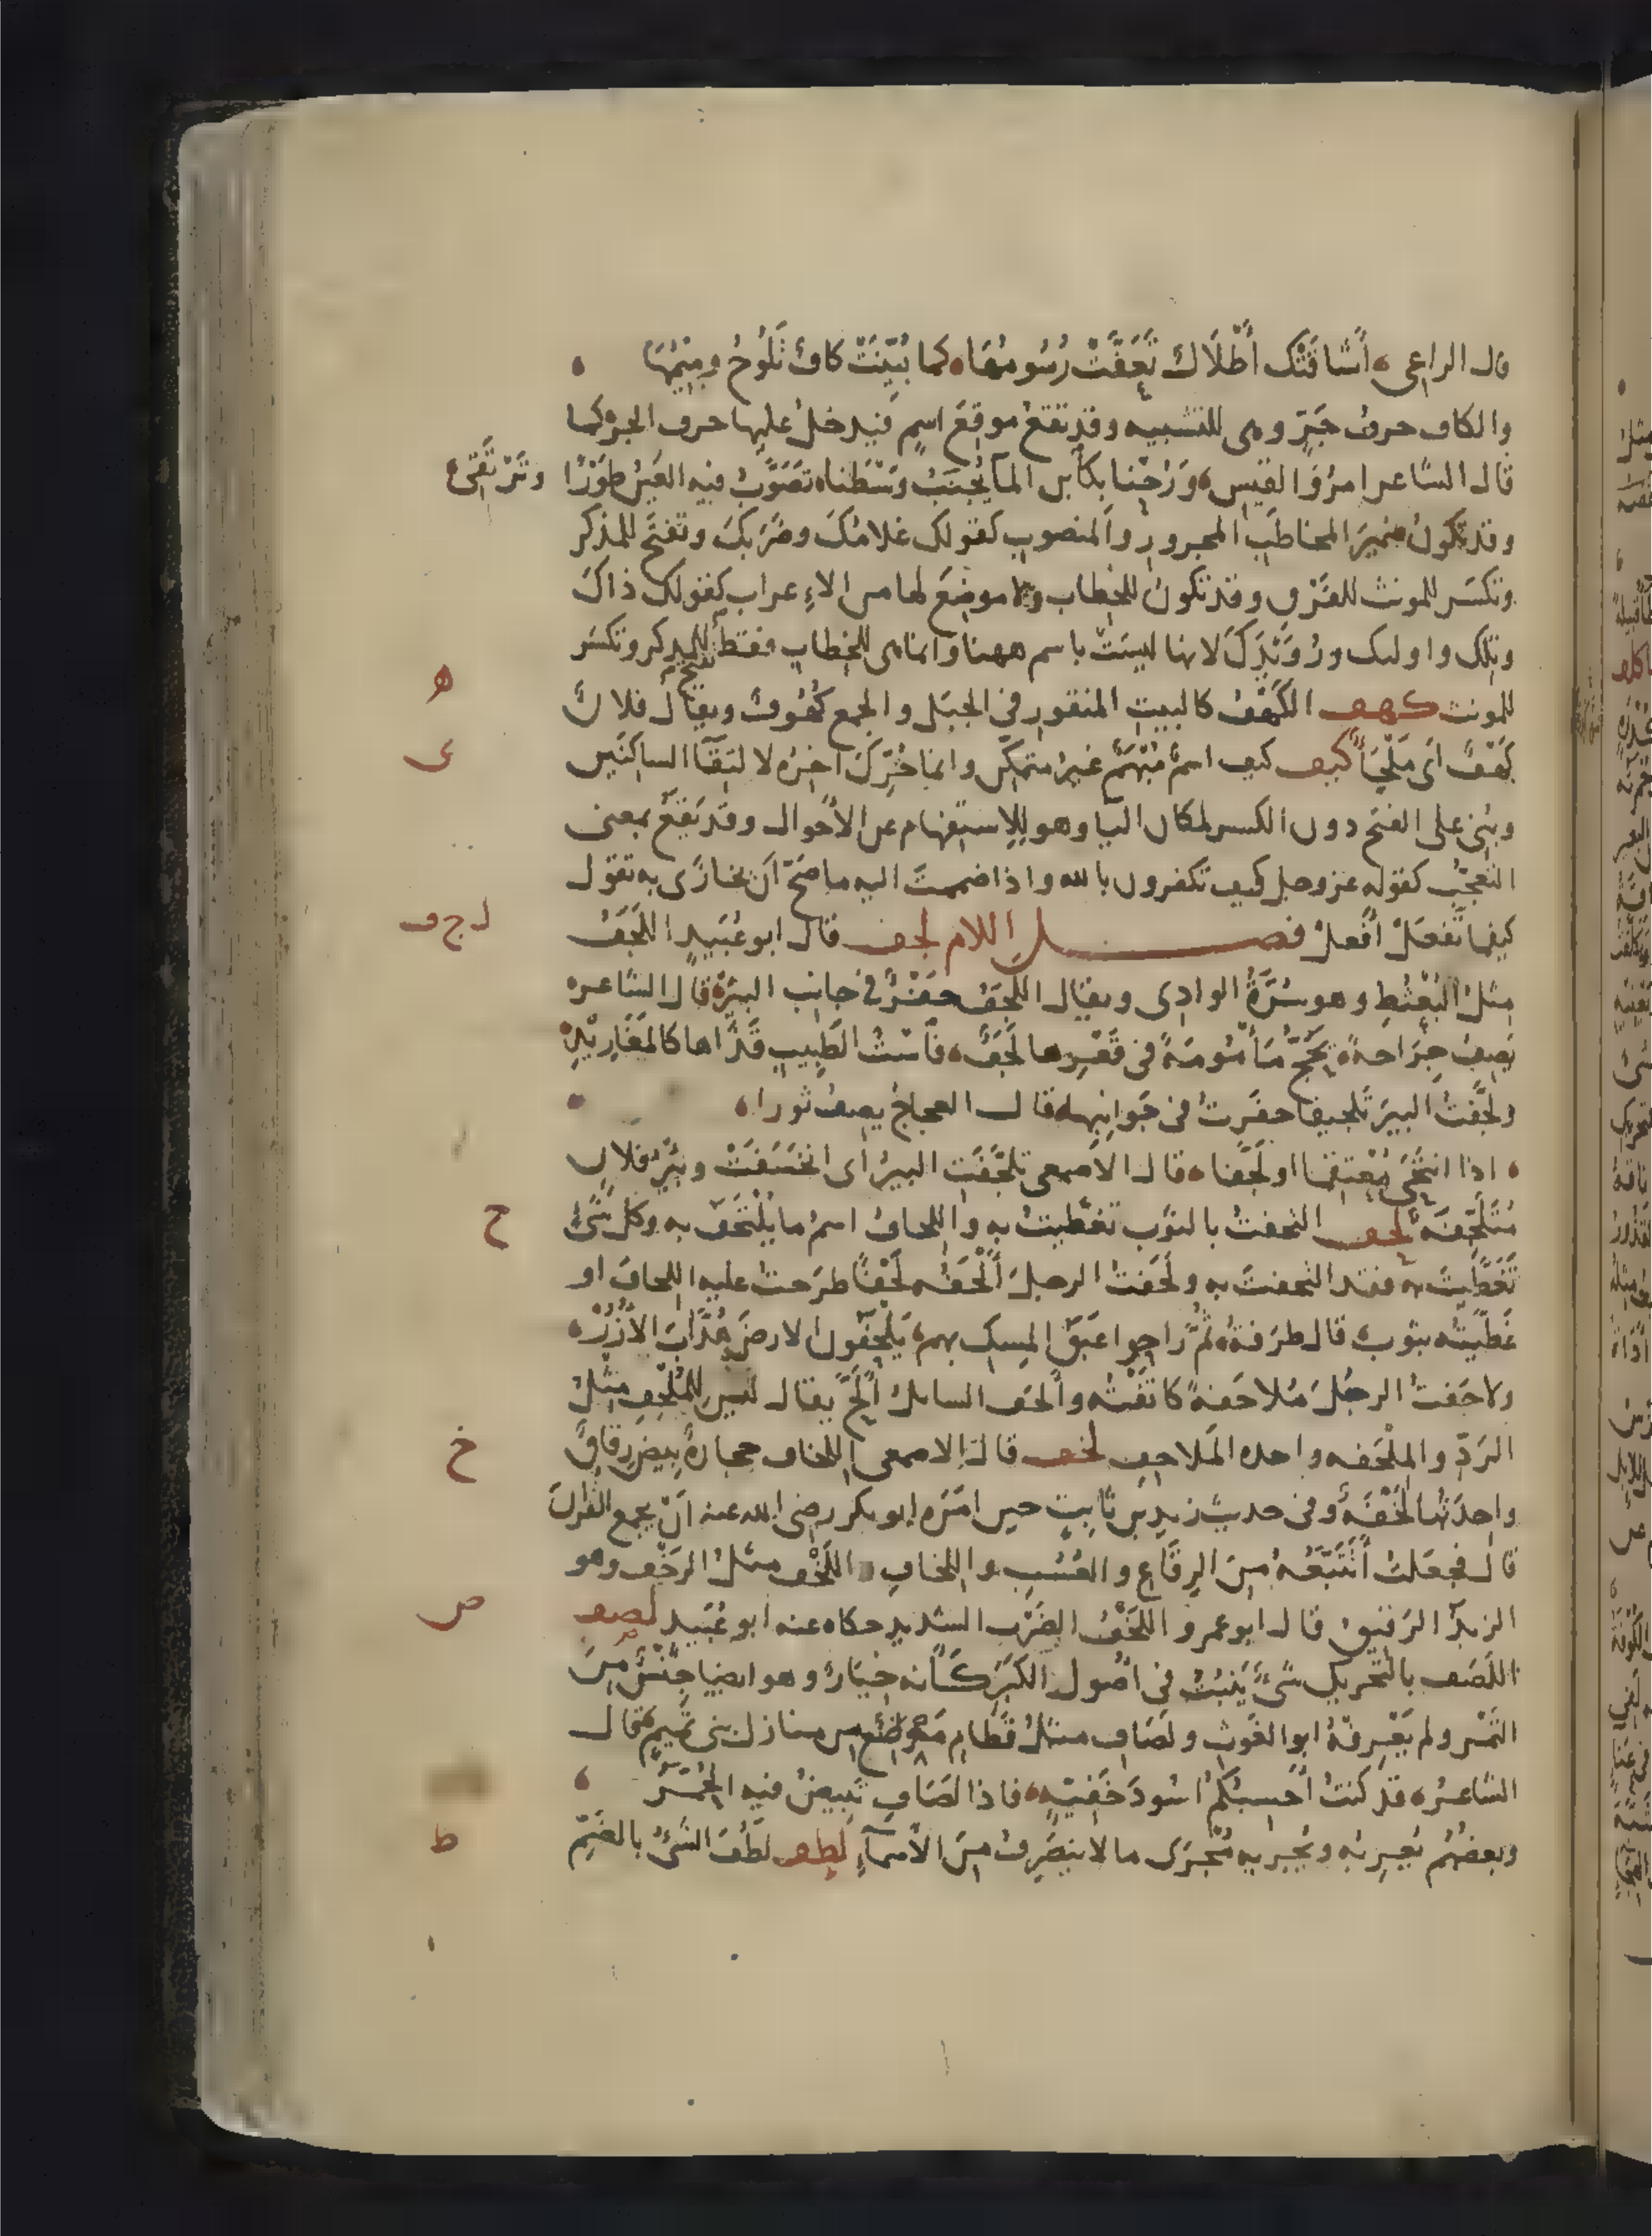 قال الراعي أَشَاقَتْكَ أَطْلَالٌ تَعَفَّتْ رُسُومُهَا كما بُيِّنَتْ كافٌ تَلُوحُ ومِيمُهَا
والكاف حرفُ جَرٍّ وهى للتشبيه وقد تقعُ موقِعَ اسمٍ فيدخلُ عليها حرف الجر كما
قال الشاعر امرُؤُ القيس وَرُحْنا بكابن المآ يُجْنَبُ وَسْطَنا تَصَوَّبُ فيه العَينُ طَوْرًا وتَرْتَقِى
وقد تكونُ ضميرَ المخاطَبِ المجرورِ والمنصوبِ كقولك غلامُكَ وضَرَبَكَ وتفتَح للمذكر
وتكسَر للمونث للفَرْق وقد تكونُ للخِطاب ولا موضِعَ لها من الاعراب كقولك ذاكَ
وتِلك واولىك ورُوَيْدَكَ لانها ليسَتْ باسم ههنا وانما هى للخِطابِ فقط تفتح للمذكر وتكسَر
للمونث كهف الكَهْفُ كالبيتِ المنقورِ فى الجبَل والجمع كُهُوفٌ ويقالُ فلانٌ ه
كَهْفٌ اى مَلْجَأٌ كيف كيف اسمٌ مُبْهَمٌ غيرُ متمكِّن وانما حُرِّكَ اخِرُه لالتِقآ الساكنَين ى
وبُنِى على الفتح دون الكسر لمكان اليا وهو للاستفهام عن الأحوال وقد يَقعُ بمعنى
التعجّب كقوله عز وجل كيف تكفرون بالله واذا ضممتَ اليه ما صَحّ اَن يجازَى به تقول
كيفما تَفعَلْ أَفعلْ فصل اللام لجف قال ابو عُبَيدٍ اللَّجَفُ ل ج ف
مثلُ البُعْثُطِ وهو سُرَّةُ الوادِى ويقال اللَّجَفُ حَفْرٌ فى جانِب البئر قال الشاعر
يَصِفُ جِرَاحةً يَحُجُّ مَأْمُومَةً فى قَعْرِها لَجَفٌ فَاسْتُ الطَبِيبِ قَذَاها كالمَغَارِيْدِ
ولجَّفتُ البيرَ تلجيفا حفَرتُ فى جَوانِبِها قال العجاجُ يصفُ ثورا
اذا انتَحَى مُعْتَقِما او لَجَّفا قال الاصمعى تلَجَّفَتِ البيرُ اى انخَسَفَتْ وبِئرُ فلانٍ
مُتَلَجِّفَة لحف التحفتُ بالثَوب تغَطَّيتُ به واللحافُ اسمُ ما يُلْتَحَفُ به وكل شَىْءٍ ح
تَغَطَّيتَ به فقد التحفتَ به ولَحَفتُ الرجلَ أَلْحَفُه لَحْفًا طرَحتُ عليه اللحافَ او
غَطَّيتُه بثوبٍ قال طرَفةُ ثُمَّ راحوا عَبَقُ المِسكِ بهم يَلْحَفونَ الارضَ هُدَّابَ الأُزُرْ
ولاحَفتُ الرجُلَ مُلاحَفةً كانَفْتُه وأَلحَف السايلُ أَلَحَّ يقال ليس للمُلْحِفِ مثلُ
الرَدِّ والمِلْحَفه واحده المَلاحِف لخف قال الاصمعى اللخاف حجارةٌ بِيضٌ رِقاقٌ خ
واحِدَتُها لَخْفَةٌ وفى حديث زيدِ بنِ ثابِتٍ حين امَرَه ابو بكر رضى الله عنه اَنْ يجمع القران
قال فجعلتُ أَتَتَبَّعُهُ مِنَ الرِقَاعِ والعُسُبِ واللخافِ اللَخْف مثلُ الرَخْفِ وهو
الزبدُ الرَقيقُ قال ابو عمرو اللَخْفُ الضَرْب الشديد حكاه عنه ابو عُبَيد لصف ص
اللَصَف بالتحريك شَىْءٌ يَنبُتُ فى اصُولِ الكَبَرِ كَأَنه خِيَارٌ وهو ايضا جِنْسٌ مِنَ
التَمْر ولم يَعْرِفْهُ ابو الغَوثِ ولَصَافِ مثلُ قَطَامِ مَوضِعٌ من منازل بنى تميمٍ قال
الشاعرُ قد كنتُ أَحسبُكُمْ اسُودَ خَفِيَّةٍ فاذا لَصَافِ تَبِيضُ فيه الحُمَّرُ
وبعضُهُم يُعرِبُه ويُجريه مُجْرَى ما لا يَنصَرِفُ مِنَ الأَسمآءِ لطف لَطُفَ الشَىْءُ بالضَمّ ط